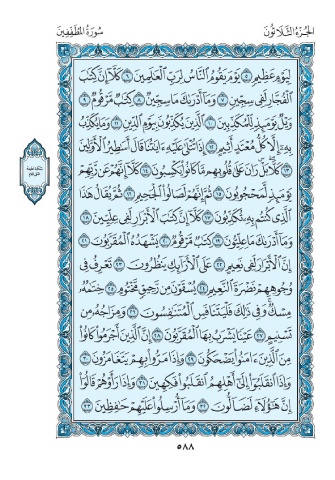 الجزء الثلاثون
سورة المطففين
ليوم عظيم ٥ يوم يقوم الناس لرب العالمين ٦ كلا إن كتب
الفجار لفي سجين ٧ وما أدرىك ما سجين ٨ كتب مرقوم ٩
ويل يومئذ للمكذبين ١٠ الذين يكذبون بيوم الدين ١١ وما يكذب
به إلا كل معتد أثيم ١٢ إذا تتلى عليه ءايتنا قال أسطير الأولين
١٣ كلا بل ران على قلوبهم ما كانوا يكسبون ١٤ كلا إنهم عن ربهم
يومئذ لمحجوبون ١٥ ثم إنهم لصالوا الجحيم ١٦ ثم يقال هذا
الذي كنتم به تكذبون ١٧ كلا إن كتب الأبرار لفي عليين ١٨
وما أدرىك ما عليون ١٩ كتب مرقوم ٢٠ يشهده المقربون ٢١
إن الأبرار لفي نعيم ٢٢ على الأرائك ينظرون ٢٣ تعرف في
وجوههم نضرة النعيم ٢٤ يسقون من رحيق مختوم ٢٥ ختمه
مسك وفي ذلك فليتنافس المتنفسون ٢٦ ومزاجه من
تسنيم ٢٧ عينا يشرب بها المقربون ٢٨ إن الذين أجرموا كانوا
من الذين ءامنوا يضحكون ٢٩ وإذا مروا بهم يتغامزون ٣٠
وإذا انقلبوا إلى أهلهم انقلبوا فكهين ٣١ وإذا رأوهم قالوا
إن هؤلاء لضالون ٣٢ وما أرسلوا عليهم حفظين ٣٣
٥٨٨